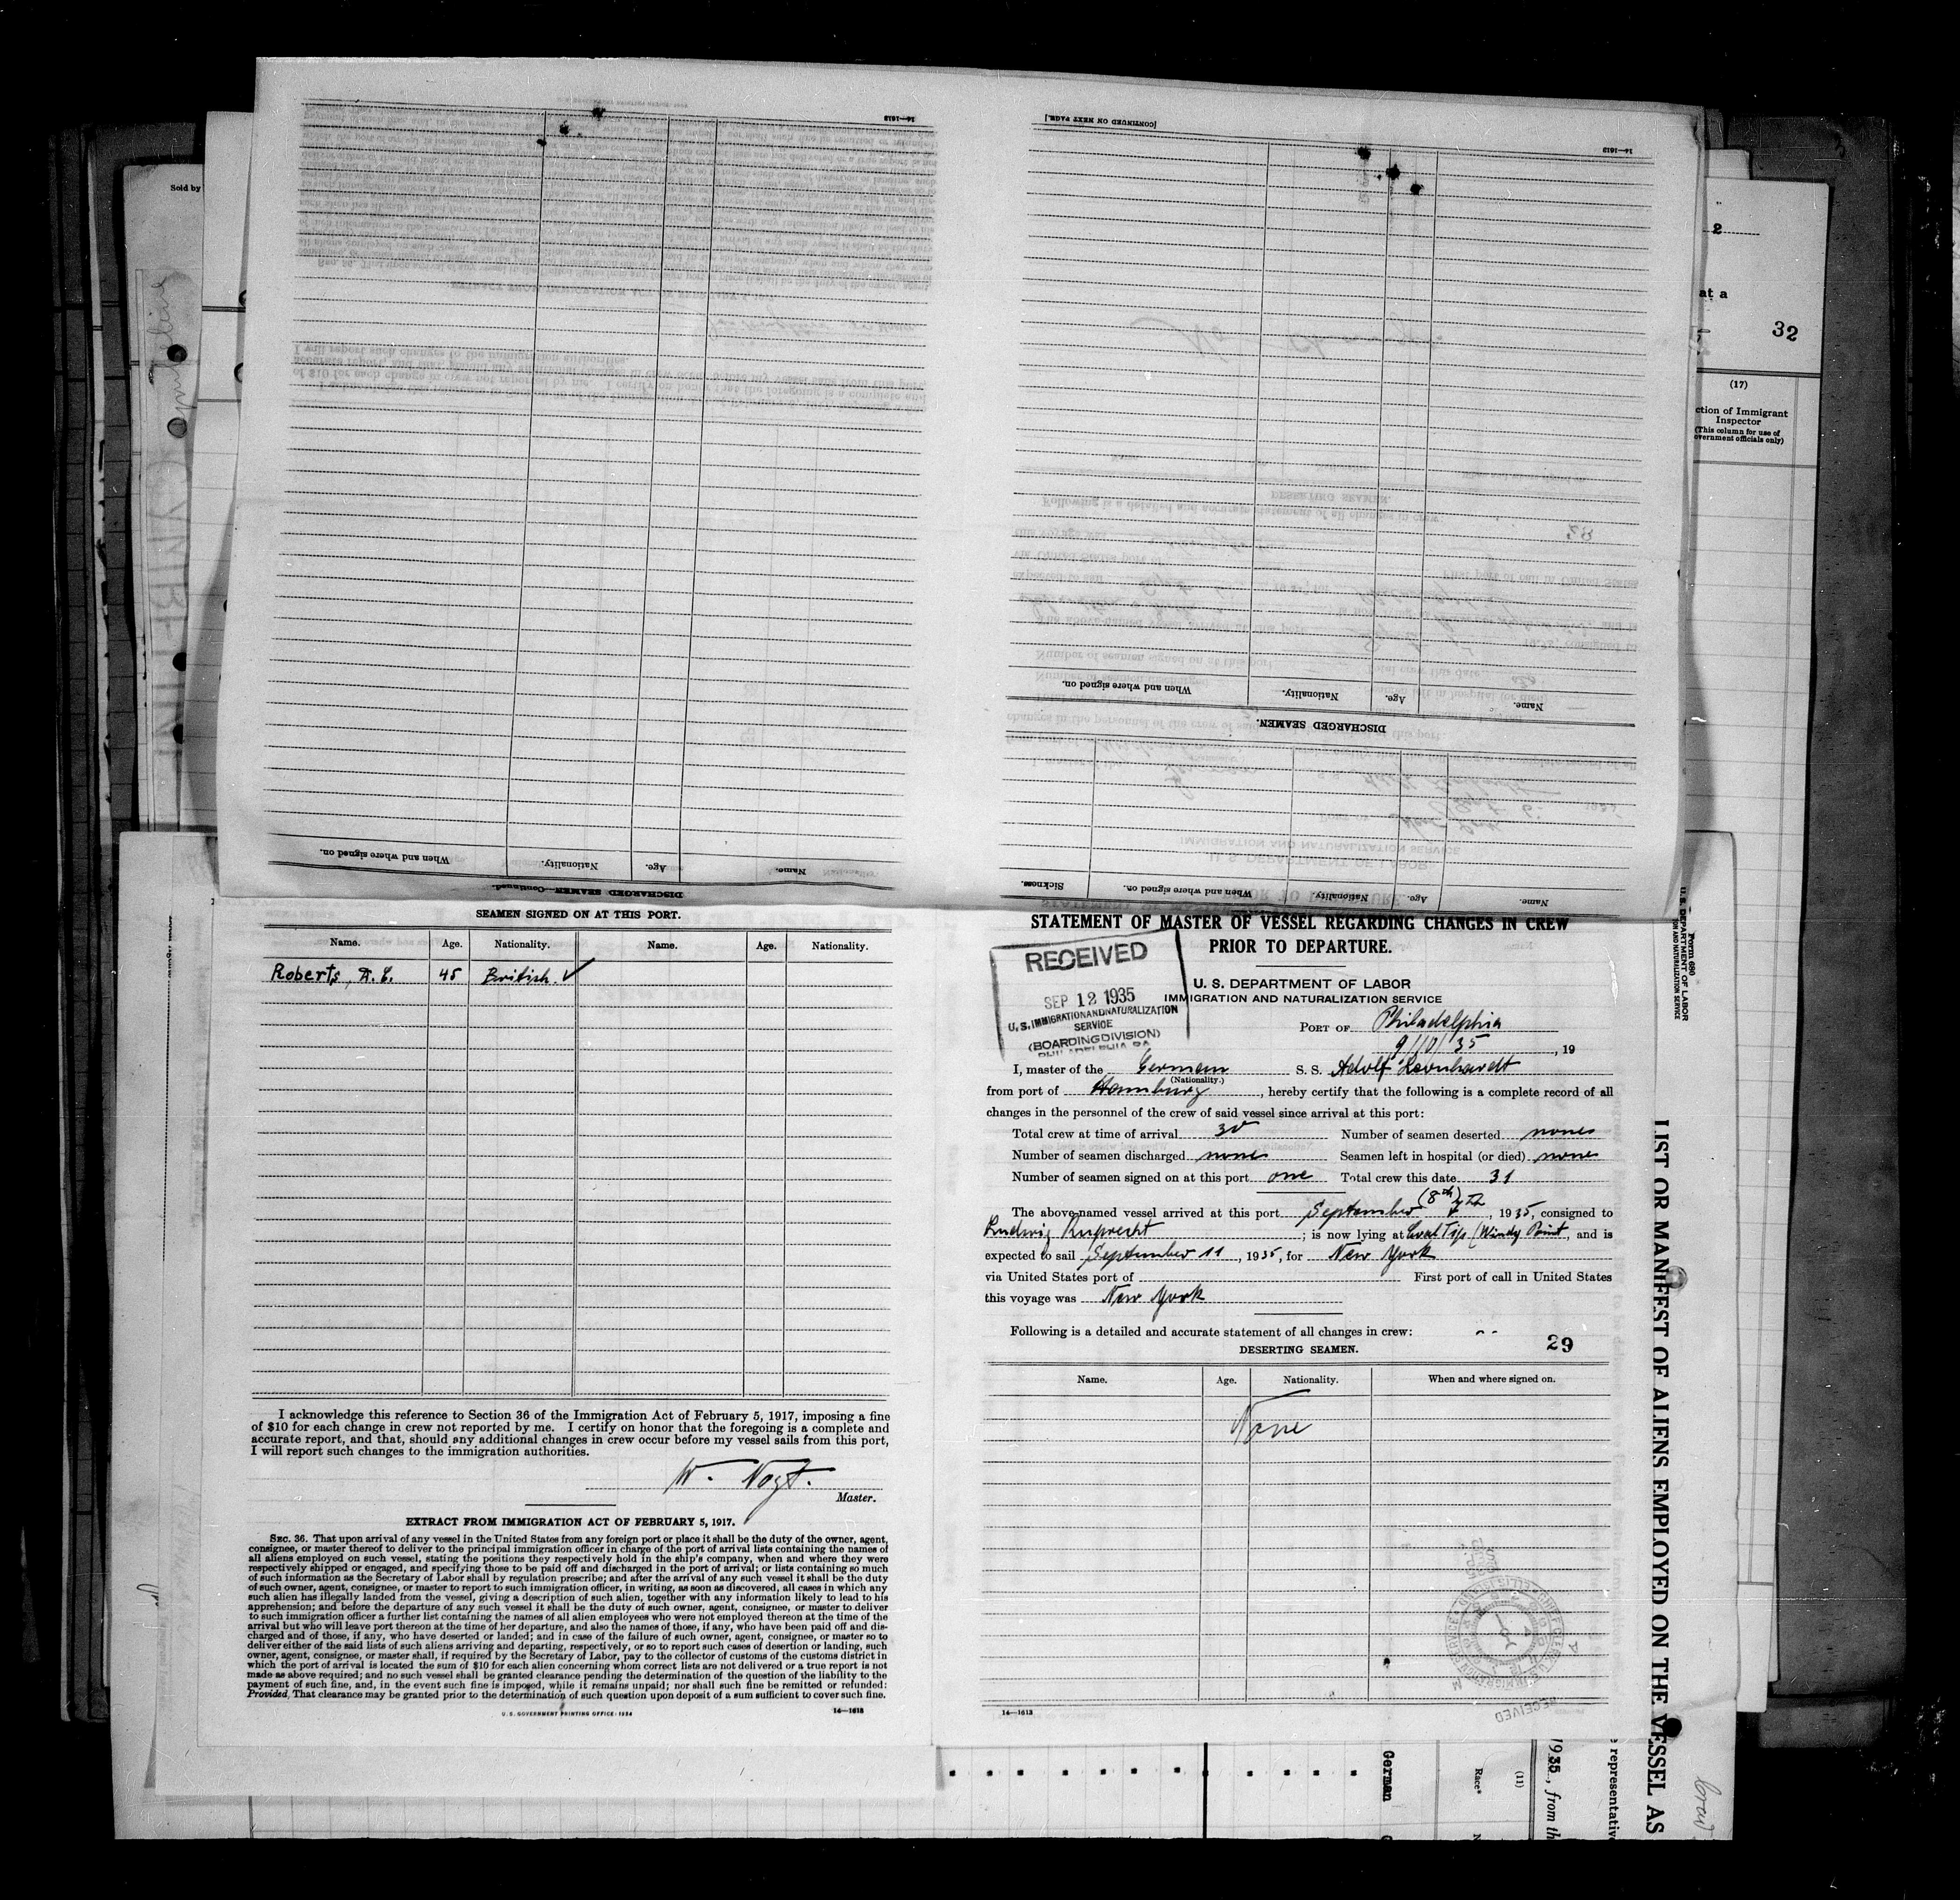 Sold by
2
at a
32
(17)
ction of Immigrant
Inspector
(This column for use of
overnment officials only)
14—1613
[CONTINUED ON NEXT PAGE.]
14—1613
When and where signed on.
Nationality.
Age.
Name.
DISCHARGED SEAMEN.
When and where signed on.
Nationality.
Age.
Name.
Sickness.
When and where signed on.
Nationality.
Age.
Name.
DISCHARGED SEAMEN—Continued.
SEAMEN SIGNED ON AT THIS PORT.
Name. Age. Nationality. Name. Age. Nationality.
Roberts, A. E. 45 British. ✓
I acknowledge this reference to Section 36 of the Immigration Act of February 5, 1917, imposing a fine
of $10 for each change in crew not reported by me. I certify on honor that the foregoing is a complete and
accurate report, and that, should any additional changes in crew occur before my vessel sails from this port,
I will report such changes to the immigration authorities.
W. Vogt.
Master.
EXTRACT FROM IMMIGRATION ACT OF FEBRUARY 5, 1917.
SEC. 36. That upon arrival of any vessel in the United States from any foreign port or place it shall be the duty of the owner, agent,
consignee, or master thereof to deliver to the principal immigration officer in charge of the port of arrival lists containing the names of
all aliens employed on such vessel, stating the positions they respectively hold in the ship's company, when and where they were
respectively shipped or engaged, and specifying those to be paid off and discharged in the port of arrival; or lists containing so much
of such information as the Secretary of Labor shall by regulation prescribe; and after the arrival of any such vessel it shall be the duty
of such owner, agent, consignee, or master to report to such immigration officer, in writing, as soon as discovered, all cases in which any
such alien has illegally landed from the vessel, giving a description of such alien, together with any information likely to lead to his
apprehension; and before the departure of any such vessel it shall be the duty of such owner, agent, consignee, or master to deliver
to such immigration officer a further list containing the names of all alien employees who were not employed thereon at the time of the
arrival but who will leave port thereon at the time of her departure, and also the names of those, if any, who have been paid off and dis-
charged and of those, if any, who have deserted or landed; and in case of the failure of such owner, agent, consignee, or master so to
deliver either of the said lists of such aliens arriving and departing, respectively, or so to report such cases of desertion or landing, such
owner, agent, consignee, or master shall, if required by the Secretary of Labor, pay to the collector of customs of the customs district in
which the port of arrival is located the sum of $10 for each alien concerning whom correct lists are not delivered or a true report is not
made as above required; and no such vessel shall be granted clearance pending the determination of the question of the liability to the
payment of such fine, and, in the event such fine is imposed, while it remains unpaid; nor shall such fine be remitted or refunded:
Provided, That clearance may be granted prior to the determination of such question upon deposit of a sum sufficient to cover such fine.
U. S. GOVERNMENT PRINTING OFFICE: 1934
14—1613
STATEMENT OF MASTER OF VESSEL REGARDING CHANGES IN CREW
PRIOR TO DEPARTURE.
RECEIVED
SEP 12 1935
U. S. IMMIGRATION AND NATURALIZATION
SERVICE
(BOARDING DIVISION)
PHILADELPHIA PA
U. S. DEPARTMENT OF LABOR
IMMIGRATION AND NATURALIZATION SERVICE
PORT OF Philadelphia
9/10/35, 19
I, master of the German S. S. Adolf Leonhardt
(Nationality.)
from port of Hamburg, hereby certify that the following is a complete record of all
changes in the personnel of the crew of said vessel since arrival at this port:
Total crew at time of arrival 30 Number of seamen deserted none
Number of seamen discharged none Seamen left in hospital (or died) none
Number of seamen signed on at this port one Total crew this date 31
The above-named vessel arrived at this port September (8th), 1935, consigned to
Ludwig Ruprecht; is now lying at Coal Tip (Windy Point, and is
expected to sail September 11, 1935, for New York
via United States port of First port of call in United States
this voyage was New York
Following is a detailed and accurate statement of all changes in crew:
29
DESERTING SEAMEN.
Name. Age. Nationality. When and where signed on.
None
RECEIVED
14—1613
Form 680
U. S. DEPARTMENT OF LABOR
LIST OR MANIFEST OF ALIENS EMPLOYED ON THE VESSEL AS
German
Race*
(11)
1935, from th
representative